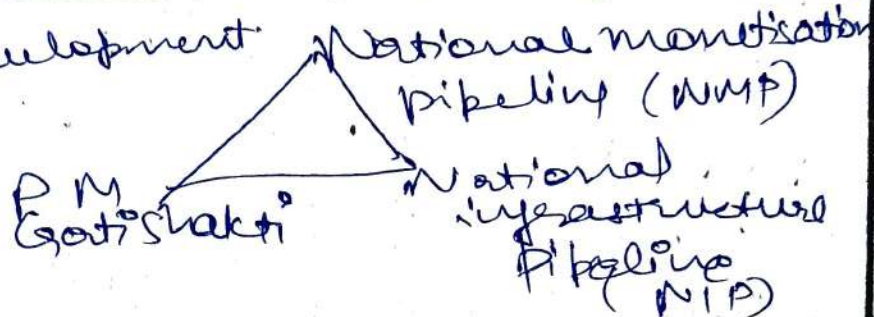 National monetisation
pipeline (NMP)
PM
GatiShakti
National
infrastructure
Pipeline
(NIP)